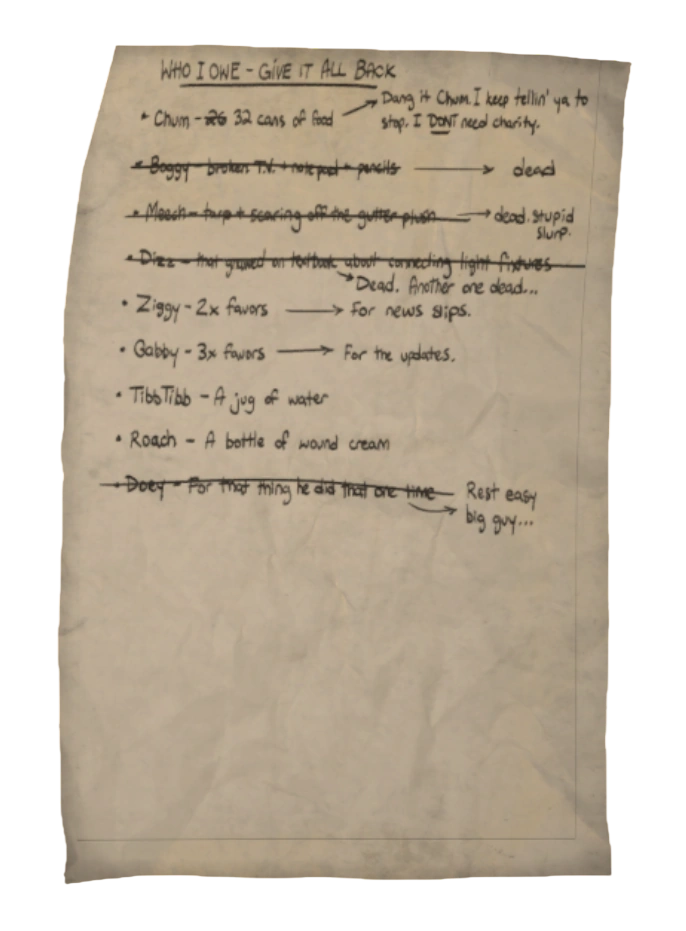 WHO I OWE - GIVE IT ALL BACK
• Chum - 26 32 cans of food → Dang it Chum. I keep tellin' ya to
stop. I DON'T need charity.
• Baggy - broken T.V. + notepad + pencils → dead
• Mooch - tarp + scaring off the gutter plush → dead. stupid
slurp.
• Dizz - that gnawed on textbook about connecting light fixtures
→ Dead. Another one dead...
• Ziggy - 2x favors → For news slips.
• Gabby - 3x favors → For the updates.
• TibbTibb - A jug of water
• Roach - A bottle of wound cream
• Doey - For that thing he did that one time → Rest easy
big guy...